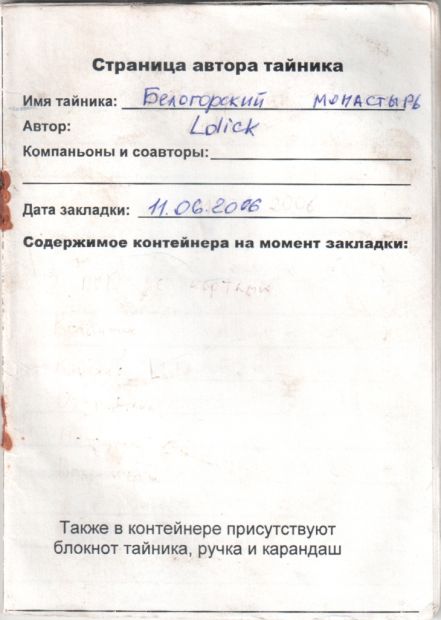 Страница автора тайника
Имя тайника: Белогорский монастырь
Автор: Lolick
Компаньоны и соавторы:
Дата закладки: 11.06.2006
Содержимое контейнера на момент закладки:
Также в контейнере присутствуют
блокнот тайника, ручка и карандаш